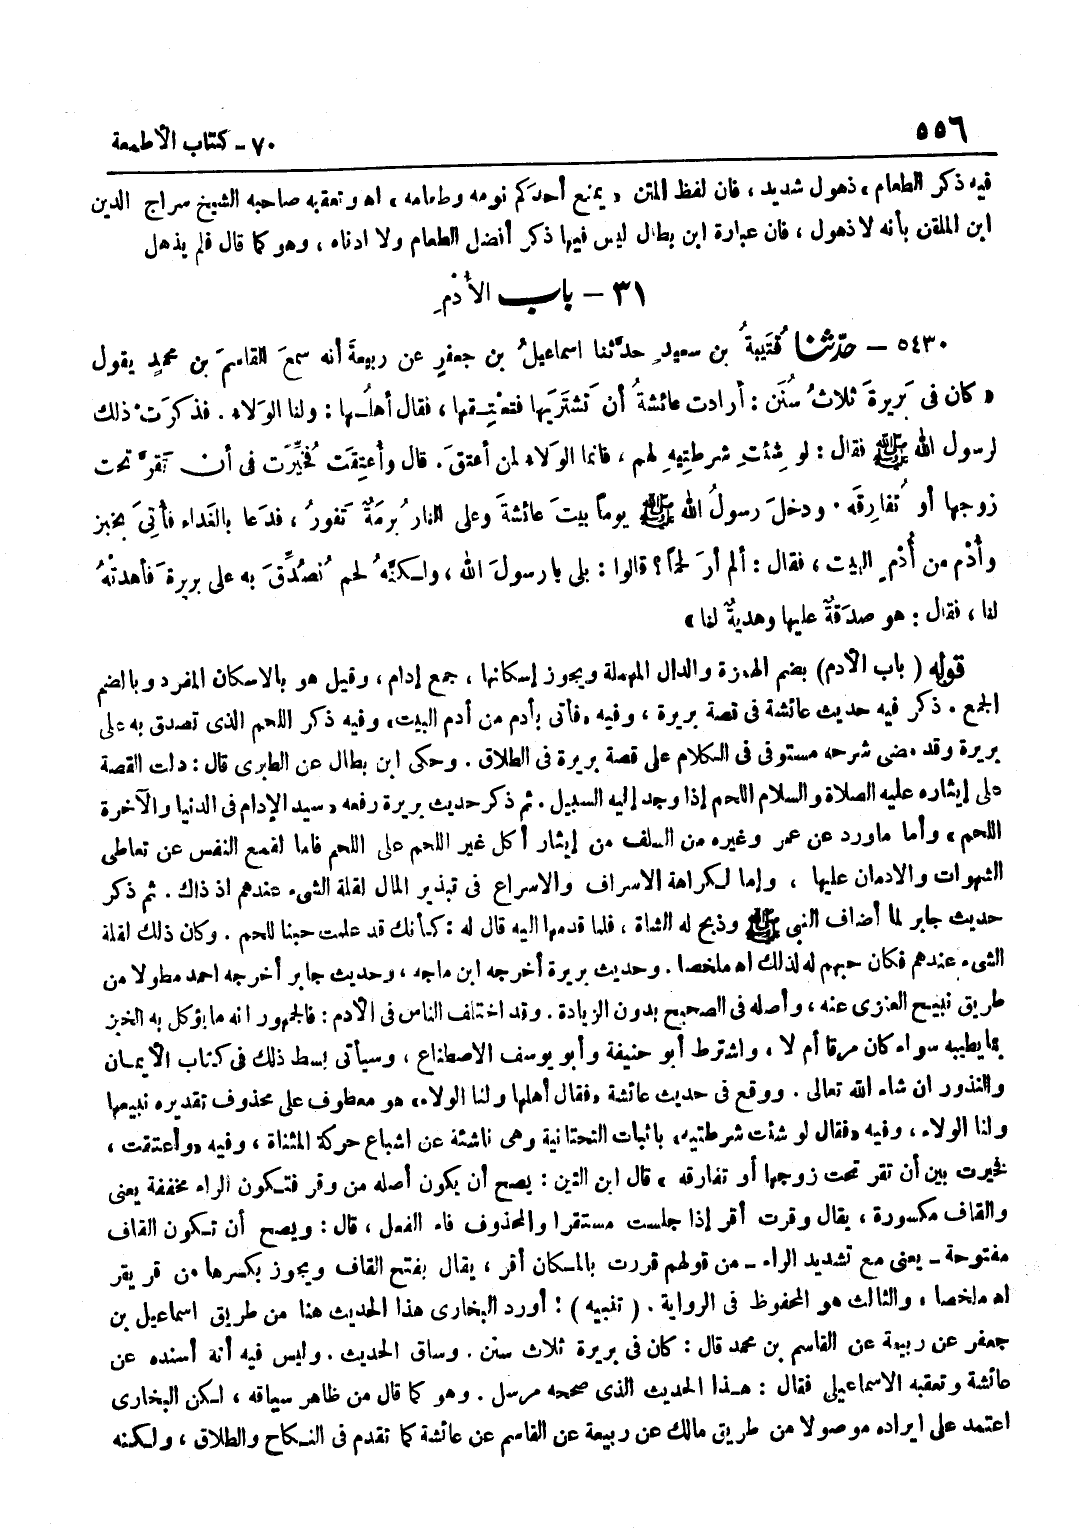 ٥٥٦
٧٠ - كتاب الأطعمة
فيه ذكر الطعام ، ذهول شديد ، فان لفظ المتن « يمنع أحدكم نومه وطعامه » اه وتعقبه صاحبه الشيخ سراج الدين
ابن الملقن بأنه لا ذهول ، فان عبارة ابن بطال ليس فيها ذكر أفضل الطعام ولا ادناه ، وهو كما قال فلم يذهل
٣١ - باب الأُدْمِ
٥٤٣٠ - حدّثنا قُتَيبةُ بن سعيدٍ حدَّثنا اسماعيلُ بن جعفرٍ عن ربيعةَ أنه سمعَ القاسمَ بن محمدٍ يقول
« كان فى بَرِيرةَ ثلاثُ سُنَن : أرادت عائشةُ أن تَشتَرِيَها فتعْتِقها ، فقال أهلُها : ولنا الولاء . فذكرَتْ ذلك
لرسول الله ﷺ فقال : لو شئتِ شرطتِيهِ لهم ، فانما الولاء لمن أعتقَ . قال وأُعتِقَت فخُيِّرَت فى أن تَقرَّ تحت
زوجها أو تُفارِقَه . ودخلَ رسولُ الله ﷺ يوماً بيتَ عائشةَ وعلى النار بُرمَةٌ تَفورُ ، فدَعا بالغَداء فأُتِيَ بخبز
وأُدْم من أُدْمِ البيت ، فقال : ألم أرَ لحماً ؟ قالوا : بلى يا رسولَ الله ، ولكنَّهُ لحم تُصُدِّقَ به على بريرةَ فأهدتْهُ
لنا ، فقال : هو صدَقةٌ عليها وهديةٌ لنا »
قوله ( باب الأدم ) بضم الهمزة والدال المهملة ويجوز إسكانها ، جمع إدام ، وقيل هو بالاسكان المفرد وبالضم
الجمع . ذكر فيه حديث عائشة فى قصة بريرة ، وفيه « فأتى بأدم من أدم البيت » وفيه ذكر اللحم الذى تصدق به على
بريرة وقد مضى شرحه مستوفى فى الكلام على قصة بريرة فى الطلاق . وحكى ابن بطال عن الطبرى قال : دلت القصة
على إيثاره عليه الصلاة والسلام اللحم إذا وجد إليه السبيل . ثم ذكر حديث بريرة رفعه « سيد الإدام فى الدنيا والآخرة
اللحم » وأما ما ورد عن عمر وغيره من السلف من إيثار أكل غير اللحم على اللحم فاما لقمع النفس عن تعاطى
الشهوات والادمان عليها ، وإما لكراهة الاسراف والاسراع فى تبذير المال لقلة الشىء عندهم اذ ذاك . ثم ذكر
حديث جابر لما أضاف النبي ﷺ وذبح له الشاة ، فلما قدمها اليه قال له : كأنك قد علمت حبنا للحم . وكان ذلك لقلة
الشىء عندهم فكان حبهم له لذلك اه ملخصا . وحديث بريرة أخرجه ابن ماجه ، وحديث جابر أخرجه احمد مطولا من
طريق نبيح العنزى عنه ، وأصله فى الصحيح بدون الزيادة . وقد اختلف الناس فى الأدم : فالجمهور انه ما يؤكل به الخبز
بما يطيبه سواء كان مرقا أم لا ، واشترط أبو حنيفة وأبو يوسف الاصطناع ، وسيأتى بسط ذلك فى كتاب الأيمان
والنذور ان شاء الله تعالى . ووقع فى حديث عائشة « فقال أهلها ولنا الولاء » هو معطوف على محذوف تقديره نبيعها
ولنا الولاء ، وفيه « فقال لو شئت شرطتيه » باثبات التحتانية وهى ناشئة عن اشباع حركة المثناة ، وفيه « وأعتقت ،
فخيرت بين أن تقر تحت زوجها أو تفارقه » قال ابن التين : يصح أن يكون أصله من وقر فتكون الراء مخففة يعنى
والقاف مكسورة ، يقال وقرت أقر إذا جلست مستقرا والمحذوف فاء الفعل ، قال : ويصح أن تكون القاف
مفتوحة - يعنى مع تشديد الراء - من قولهم قررت بالمكان أقر ، يقال بفتح القاف ويجوز بكسرها من قر يقر
اه ملخصا ، والثالث هو المحفوظ فى الرواية . ( تنبيه ) : أورد البخارى هذا الحديث هنا من طريق اسماعيل بن
جعفر عن ربيعة عن القاسم بن محمد قال : كان فى بريرة ثلاث سنن . وساق الحديث . وليس فيه أنه أسنده عن
عائشة وتعقبه الاسماعيلى فقال : هذا الحديث الذى صححه مرسل . وهو كما قال من ظاهر سياقه ، لكن البخارى
اعتمد على ايراده موصولا من طريق مالك عن ربيعة عن القاسم عن عائشة كما تقدم فى النكاح والطلاق ، ولكنه